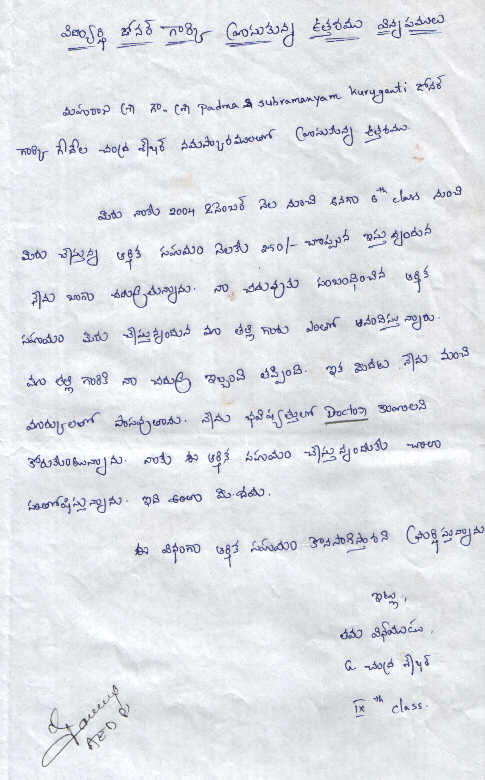 విద్యార్థి డోనర్ గార్కి వ్రాసుకున్న ఉత్తరము విన్నపములు
మహారాజ శ్రీ గౌ. శ్రీ Padma & Subramanyam Kuruganti డోనర్
గార్కి గిడేల చంద్ర శేఖర్ నమస్కారములతో వ్రాసుకున్న ఉత్తరము.
మీరు నాకు 2004 డిసెంబర్ నెల నుంచి అనగా 6th class నుంచి
మీరు చేస్తున్న ఆర్థిక సహాయం నెలకు 250/- చొప్పున ఇస్తున్నందున
నేను బాగా చదువుచున్నాను. నా చదువుకు సంబంధించిన ఆర్థిక
సహాయం మీరు చేస్తున్నందున మా తల్లి గారు ఎంతో ఆనందిస్తున్నారు.
మా తల్లి గారికి నా చదువు ఇబ్బంది తప్పింది. ఇక మీదట నేను మంచి
మార్కులతో పాసవుతాను. నేను భవిష్యత్తులో Doctor కావాలని
కోరుకుంటున్నాను. నాకు ఈ ఆర్థిక సహాయం చేస్తున్నందుకు చాలా
సంతోషిస్తున్నాను. ఇది అంతా మీ దయ.
ఈ విధంగా ఆర్థిక సహాయం కొనసాగిస్తారని ప్రార్థిస్తున్నాను
ఇట్లు,
తమ విధేయుడు,
G చంద్ర శేఖర్
IXth class.
AED